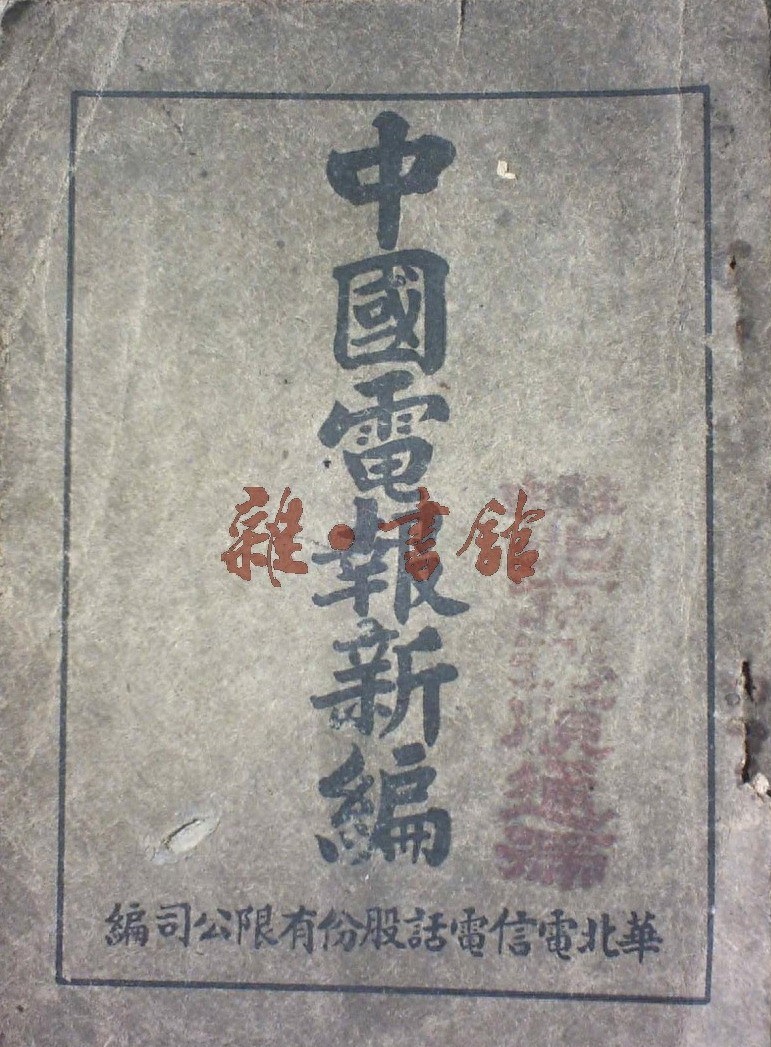 中國電報新編
雜·書館
華北電信電話股份有限公司編